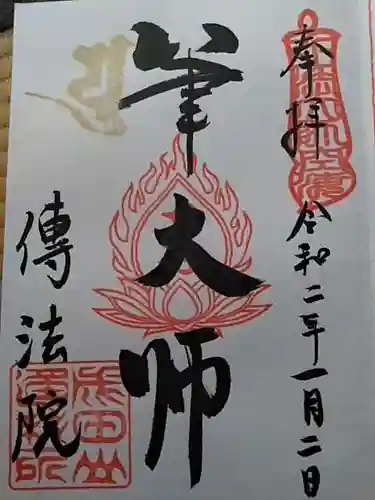 奉拝
令和二年一月二日
筆大師
傳法院